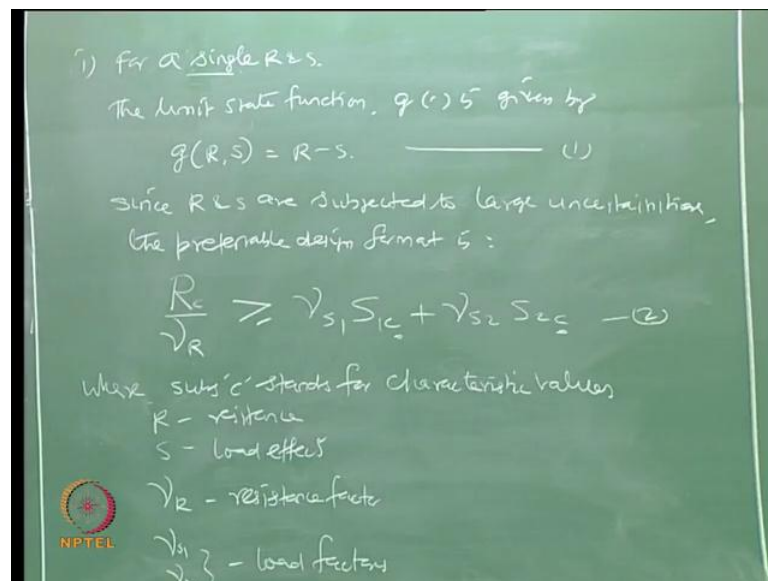 1) for a single R & S.
The limit state function, g(·) is given by
g(R,S) = R-S. ——— (1)
since R & S are subjected to large uncertainities,
the preferable design format is:
R_c / γ_R ≥ γ_S1 S_1c + γ_S2 S_2c —(2)
where subs 'c' stands for characteristic values
R - resistence
S - load effect
γ_R - resistance factor
γ_S1 } - load factors
NPTEL